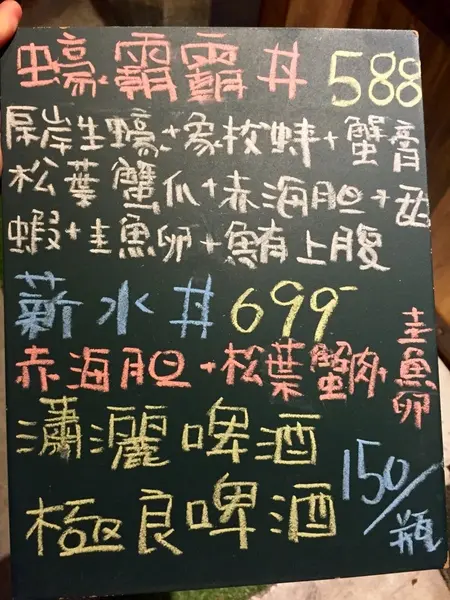 蠔霸霸丼 588
厚岸生蠔+象拔蚌+蟹膏
松葉蟹爪+赤海胆+甜
蝦+鮭魚卵+鮪上腹
薪水丼 699
赤海胆+松葉蟹肉
鮭魚卵
瀟灑啤酒
極良啤酒
150/瓶